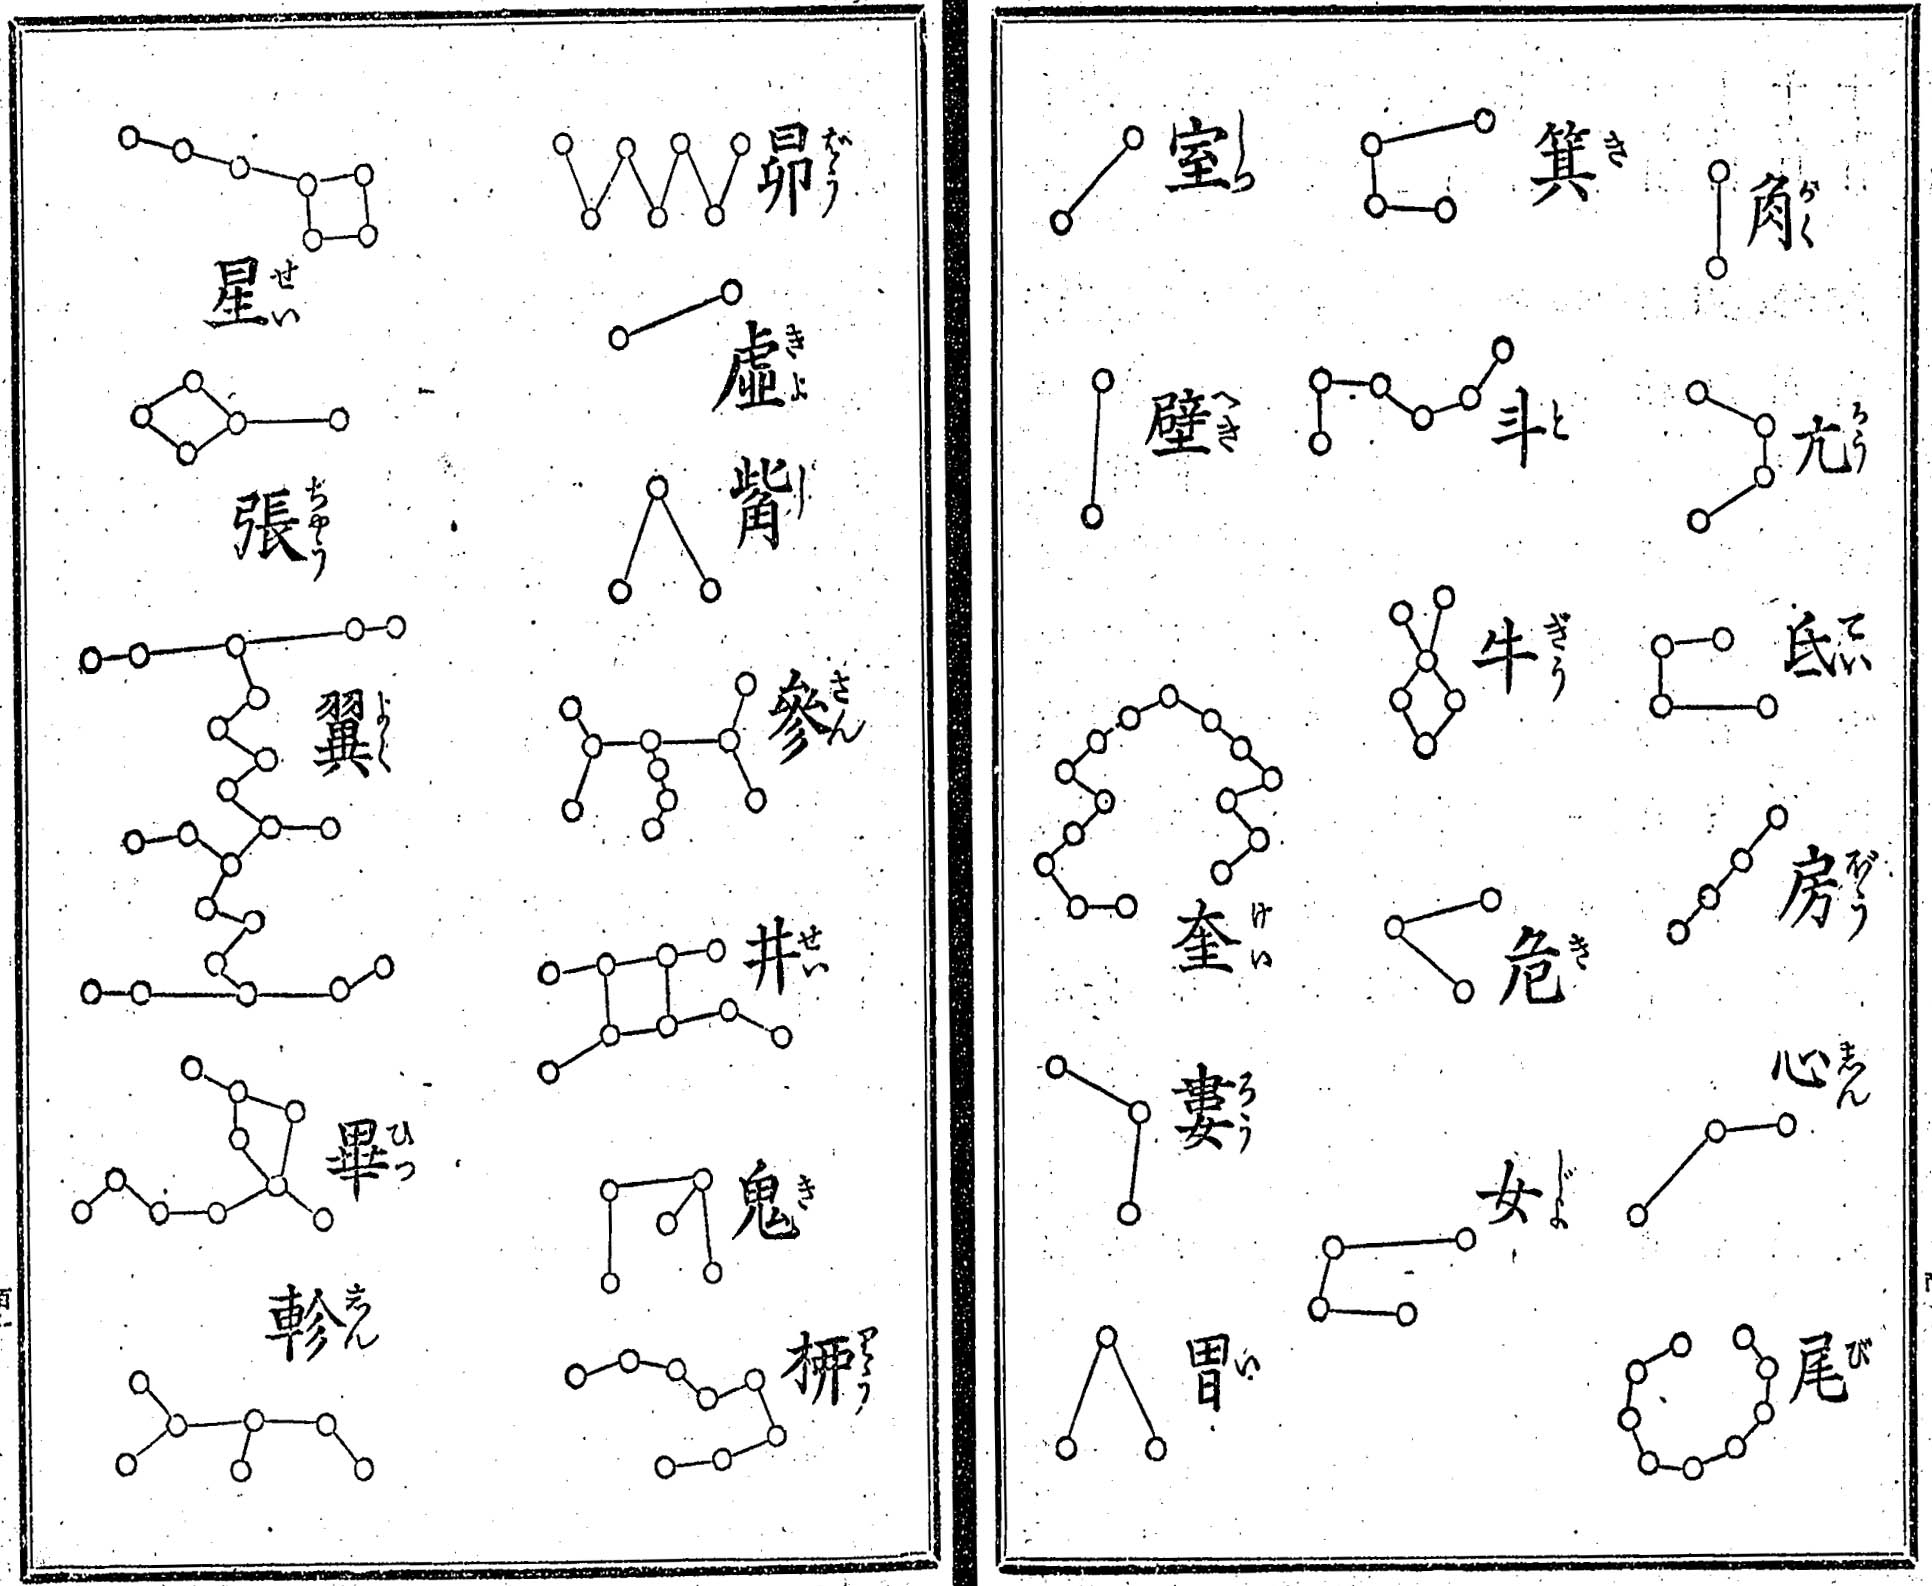 角 がく
亢 かう
氐 てい
房 ばう
心 しん
尾 び
箕 き
斗 と
牛 ぎう
危 き
女 じよ
室 しつ
壁 へき
奎 けい
婁 ろう
胃 い
昴 ばう
虛 きよ
觜 し
參 さん
井 せい
鬼 き
桺 りう
星 せい
張 ちやう
翼 よく
畢 ひつ
軫 しん